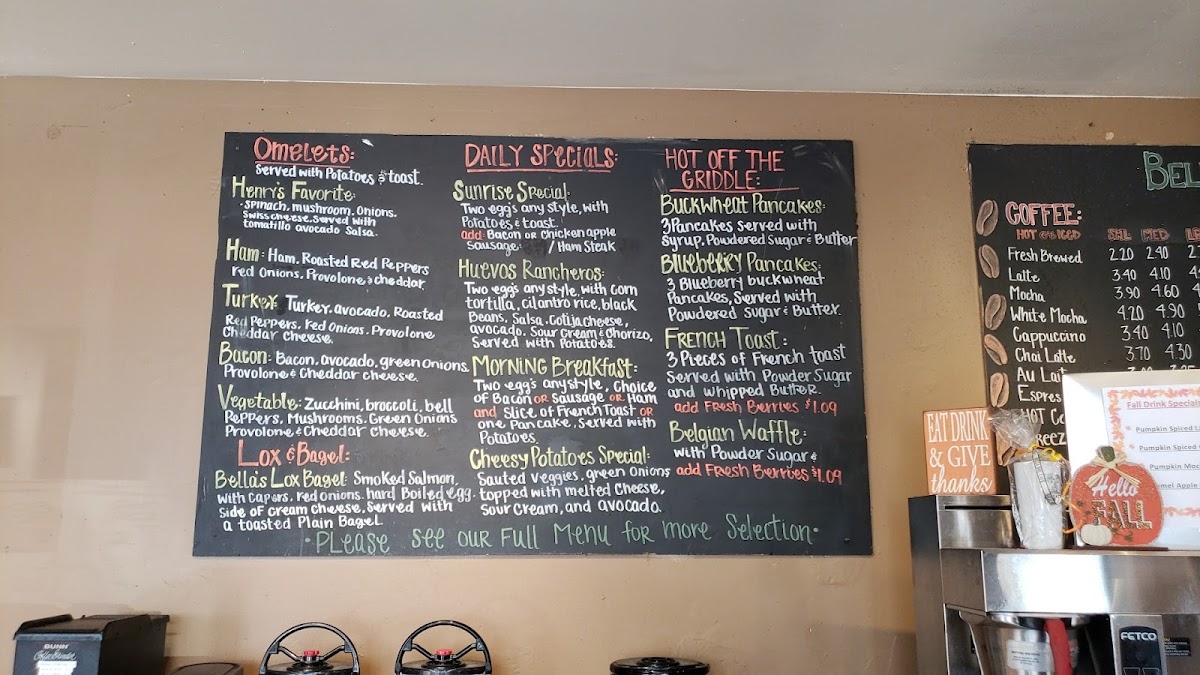 Omelets:
Served with Potatoes & toast.
Henry's Favorite:
Spinach, mushroom, Onions.
Swiss cheese. Served with
tomatillo avocado Salsa.
Ham: Ham, Roasted Red Peppers
red Onions, Provolone & cheddar
Turkey Turkey, avocado, Roasted
Red Peppers, red Onions. Provolone
Cheddar cheese.
Bacon: Bacon, avocado, green Onions.
Provolone & Cheddar cheese.
Vegetable: Zucchini, broccoli, bell
Peppers, Mushrooms, Green Onions
Provolone & Cheddar cheese.
Lox & Bagel:
Bella's Lox Bagel: Smoked Salmon,
with Capers, red onions, hard Boiled egg.
Side of cream cheese, Served with
a toasted Plain Bagel
DAILY SPecials:
Sunrise Special:
Two egg's any style, with
Potatoes & toast.
add: Bacon or Chicken apple
Sausage: / Ham Steak
Huevos Rancheros:
Two egg's any style, with Corn
tortilla, cilantro rice, black
Beans, Salsa. Cotija cheese,
avocado. Sour Cream & Chorizo,
Served with Potatoes.
Morning Breakfast:
Two egg's any style, Choice
of Bacon or Sausage or Ham
and Slice of French Toast or
one Pancake. Served with
Potatoes.
Cheesy Potatoes Special:
Sauted veggies, green Onions
topped with melted Cheese,
Sour Cream, and avocado.
HOT OFF THE
GRIDDLE:
Buckwheat Pancakes:
3 Pancakes Served with
Syrup, Powdered Sugar & Butter
Blueberry Pancakes:
3 Blueberry buckwheat
Pancakes, Served with
Powdered Sugar & Butter.
French Toast:
3 Pieces of French toast
Served with Powder Sugar
and whipped Butter.
add Fresh Berries $1.09
Belgian Waffle:
with Powder Sugar &
add Fresh Berries $1.09
•Please see our Full Menu for more Selection•
BEL
COFFEE:
HOT or ICED SML MED
Fresh Brewed 2.20 2.40
Latte 3.40 4.10
Mocha 3.90 4.60
White Mocha 4.20 4.90
Cappuccino 3.40 4.10
Chai Latte 3.70 4.30
Au Lait
Espres
HOT
Fall Drink Specials
Pumpkin Spiced
Pumpkin Spiced
Pumpkin Moc
Apple
EAT DRINK
& GIVE
thanks
Hello
FALL
BUNN
FETCO